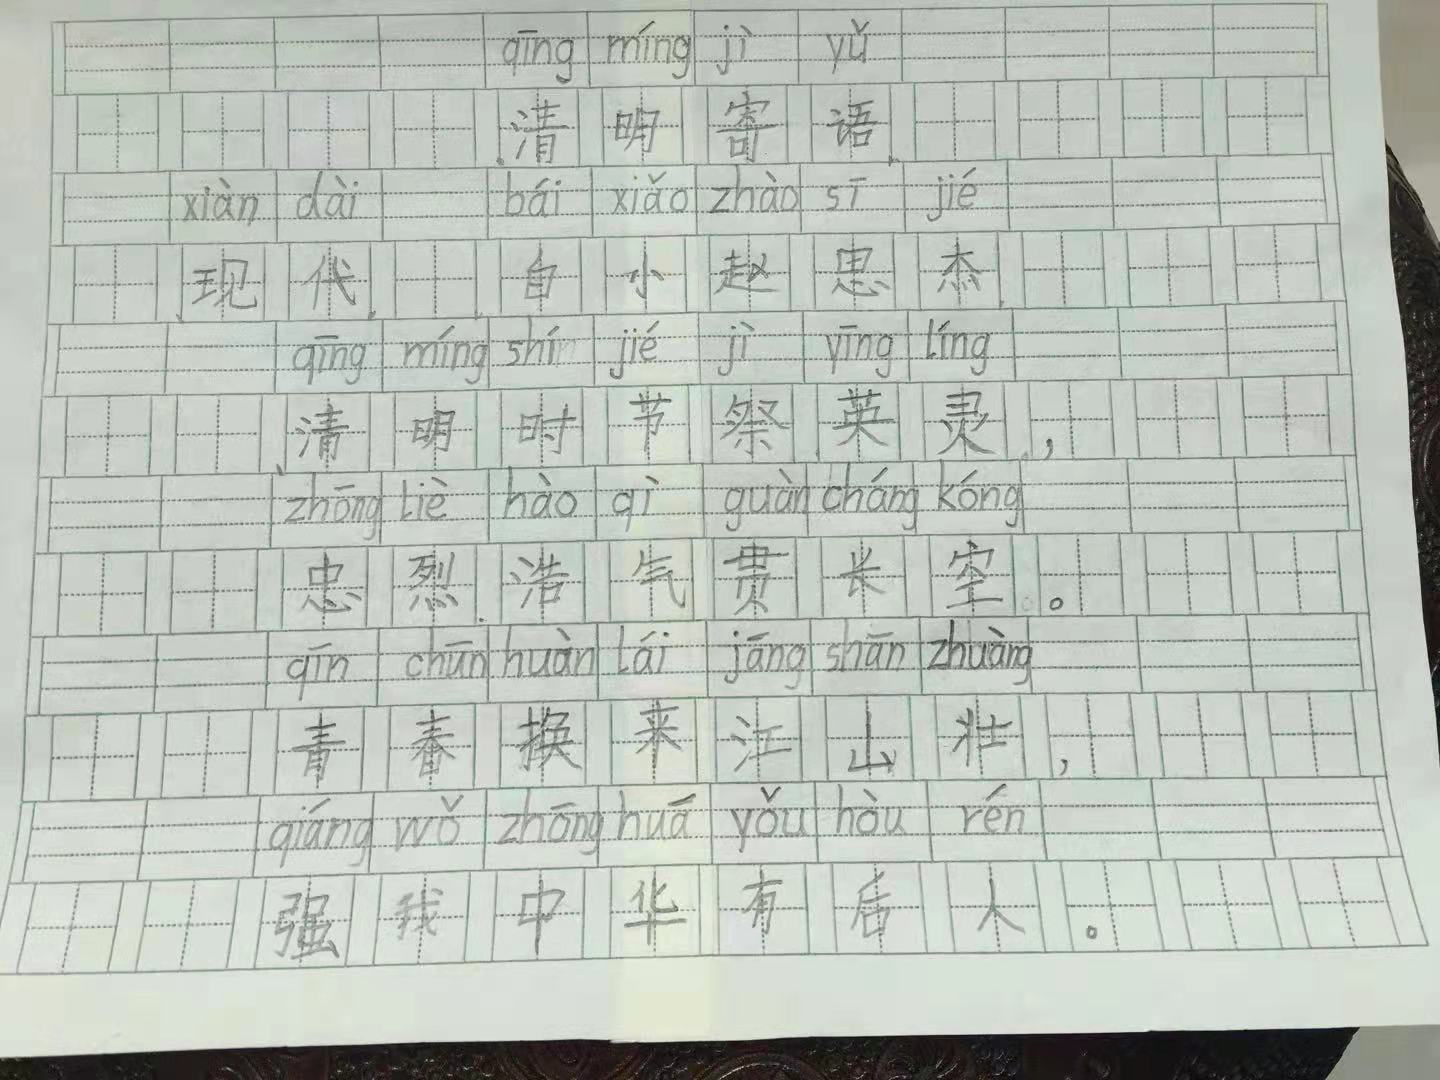 qīng míng jì yǔ
清明寄语
xiàn dài bái xiǎo zhào sī jié
现代 自小赵思杰
qīng míng shí jié jì yīng líng
清明时节祭英灵，
zhōng liè hào qì guàn cháng kóng
忠烈浩气贯长空。
qīn chūn huàn lái jāng shān zhuàng
青春换来江山壮，
qiáng wǒ zhōng huá yǒu hòu rén
强我中华有后人。